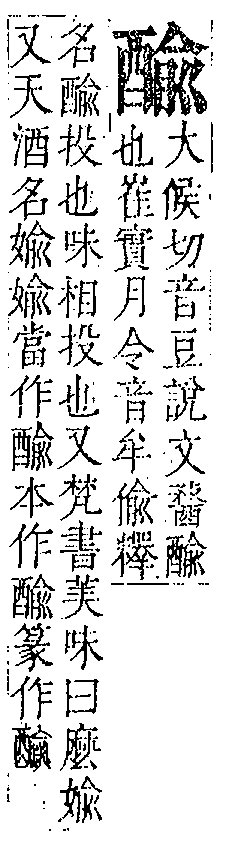 䤅
大候切音豆說文䤅
也崔實月令音牟偷釋
名䤅投也味相投也又梵書美味曰麼婾
又天酒名婾婾當作䤅本作䤅篆作䤅